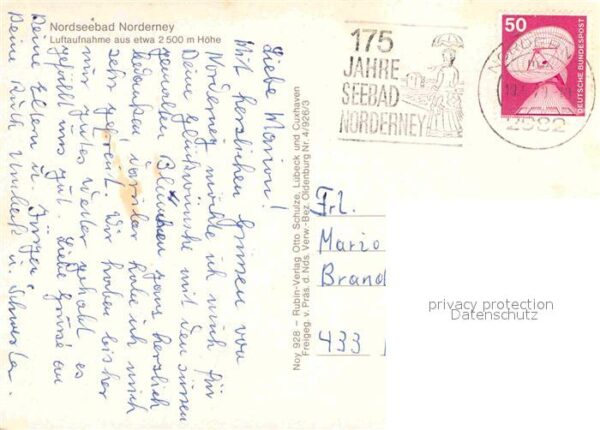 Nordseebad Norderney
Luftaufnahme aus etwa 2 500 m Höhe
Liebe Marion!
Mit herzlichen Grüssen von
Norderney möchte ich mich für
Deine Glückwünsche mit den süssen
gemalten Blümchen ganz herzlich
bedanken, darüber habe ich mich
sehr gefreut. Wir haben bisher
nur gutes Wetter gehabt, es
gefällt uns gut. Liebe Grüsse an
Deine Eltern u. Jürgen
Deine Ruth u.
Noy 928 – Rubin-Verlag Otto Schulze, Lübeck und Cuxhaven
Freigeg. v. Präs. d. Nds. Verw.-Bez. Oldenburg Nr. 4/926/3
175
JAHRE
SEEBAD
NORDERNEY
50
DEUTSCHE BUNDESPOST
NORDERNEY
2982
Frl.
Mario
Brand
433
privacy protection
Datenschutz